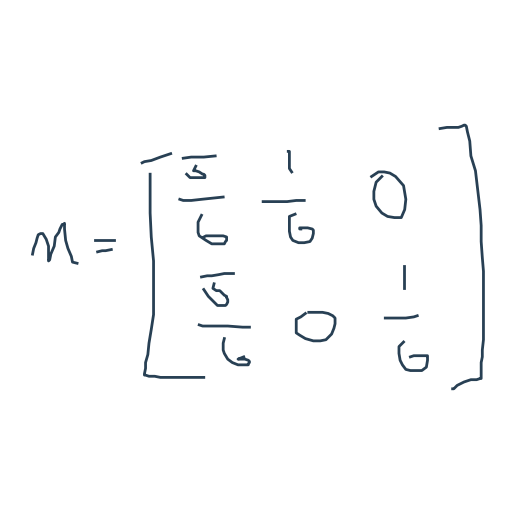 M = [ 5/6 1/6 0
5/6 0 1/6 ]